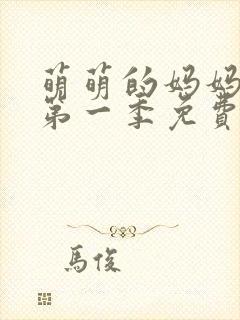 萌萌的妈妈
第一季免費
馬俊